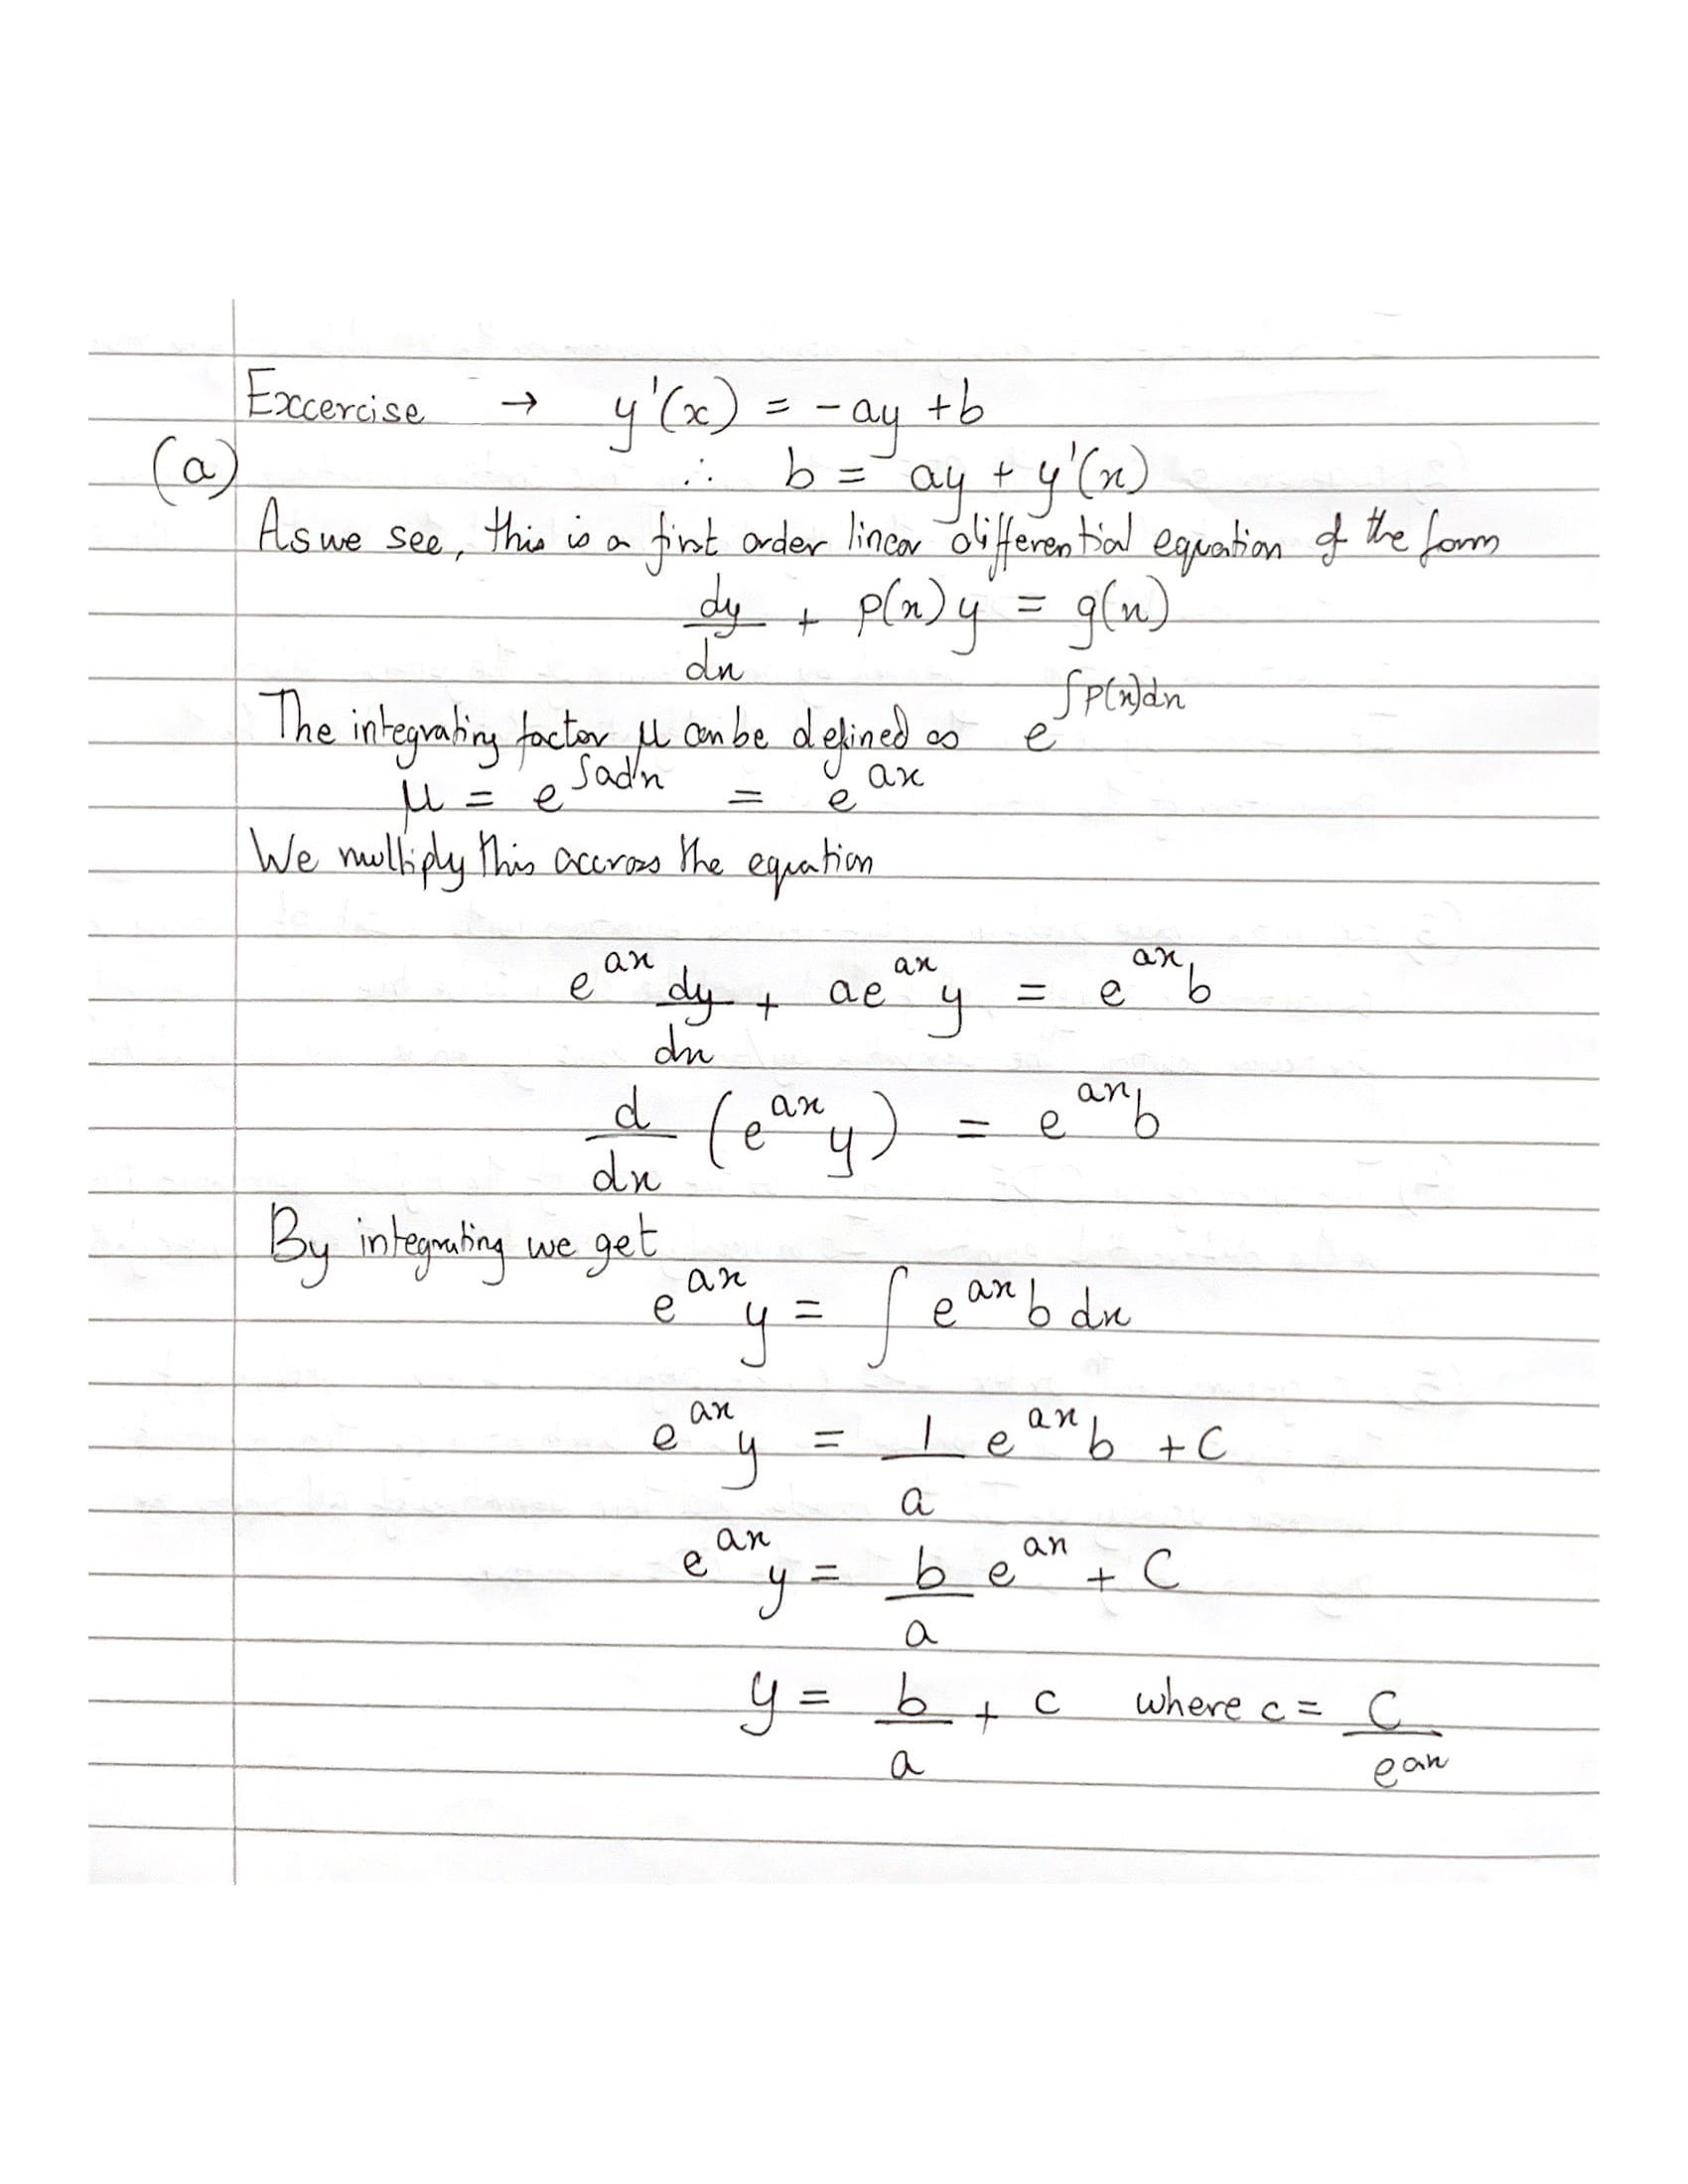 Excercise → y'(x) = -ay + b
(a) ∴ b = ay + y'(x)
As we see, this is a first order linear differential equation of the form
dy/dx + p(x) y = g(x)
The integrating factor μ can be defined as e^∫p(x)dx
μ = e^∫adx = e^ax
We multiply this accross the equation
e^ax dy/dx + ae^ax y = e^ax b
d/dx (e^ax y) = e^ax b
By integrating we get
e^ax y = ∫ e^ax b dx
e^ax y = 1/a e^ax b + C
e^ax y = b/a e^ax + C
y = b/a + c where c = C/e^ax